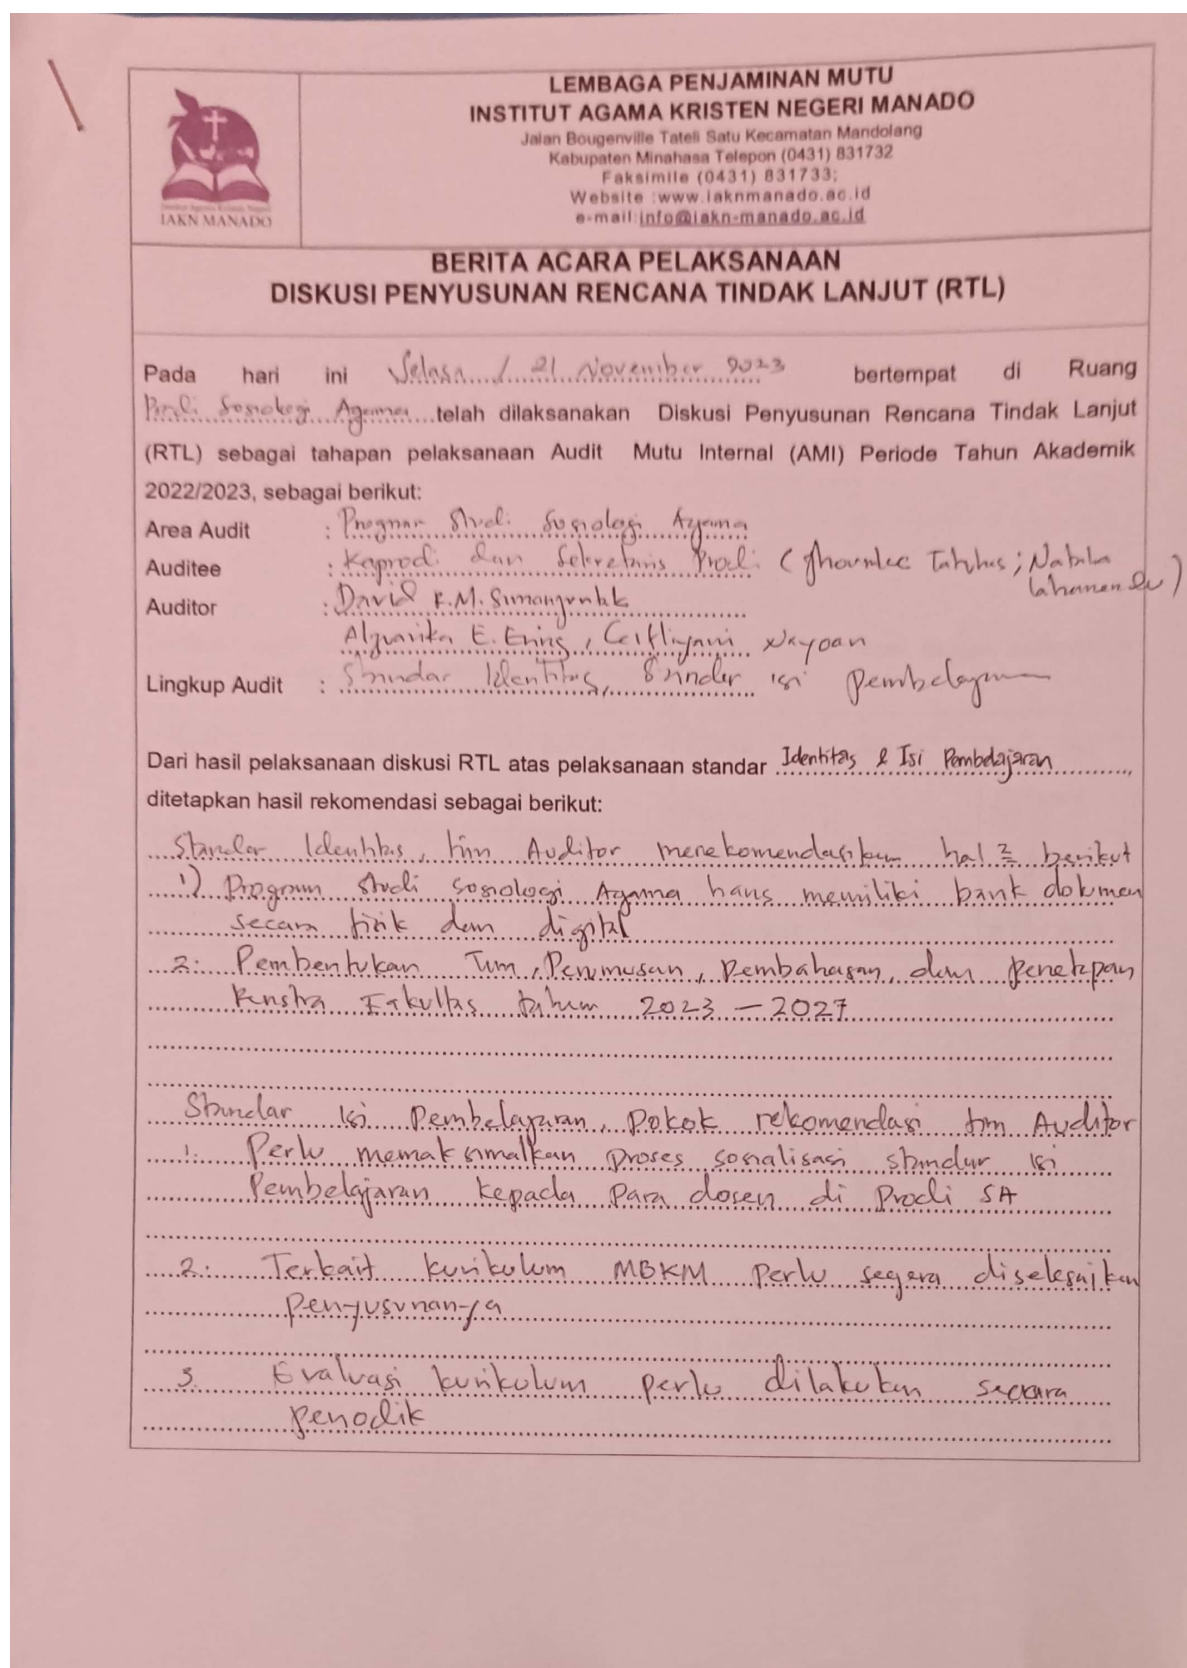 LEMBAGA PENJAMINAN MUTU
INSTITUT AGAMA KRISTEN NEGERI MANADO
Jalan Bougenville Tateli Satu Kecamatan Mandolang
Kabupaten Minahasa Telepon (0431) 831732
Faksimile (0431) 831733;
Website :www.iaknmanado.ac.id
e-mail:info@iakn-manado.ac.id
IAKN MANADO
BERITA ACARA PELAKSANAAN
DISKUSI PENYUSUNAN RENCANA TINDAK LANJUT (RTL)
Pada hari ini Selasa / 21 November 2023 bertempat di Ruang
Prodi Sosiologi Agama telah dilaksanakan Diskusi Penyusunan Rencana Tindak Lanjut
(RTL) sebagai tahapan pelaksanaan Audit Mutu Internal (AMI) Periode Tahun Akademik
2022/2023, sebagai berikut:
Area Audit : Program Studi Sosiologi Agama
Auditee : Kaprodi dan Sekretaris Prodi (
Auditor : David R.M. Simangunsong
E. Ering, Nayoan
Lingkup Audit : Standar Identitas, Standar isi pembelajaran
Dari hasil pelaksanaan diskusi RTL atas pelaksanaan standar Identitas & Isi Pembelajaran,
ditetapkan hasil rekomendasi sebagai berikut:
Standar Identitas, tim Auditor merekomendasikan hal2 berikut
1) Program studi sosiologi Agama harus memiliki bank dokumen
secara fisik dan digital
2. Pembentukan Tim, Perumusan, Pembahasan, dan penetapan
Renstra Fakultas tahun 2023 - 2027
Standar isi Pembelajaran, Pokok rekomendasi tim Auditor
1. Perlu memaksimalkan proses sosialisasi standar isi
Pembelajaran kepada Para dosen di Prodi SA
2. Terkait kurikulum MBKM perlu segera diselesaikan
penyusunan-ya
3. Evaluasi kurikulum perlu dilakukan secara
periodik